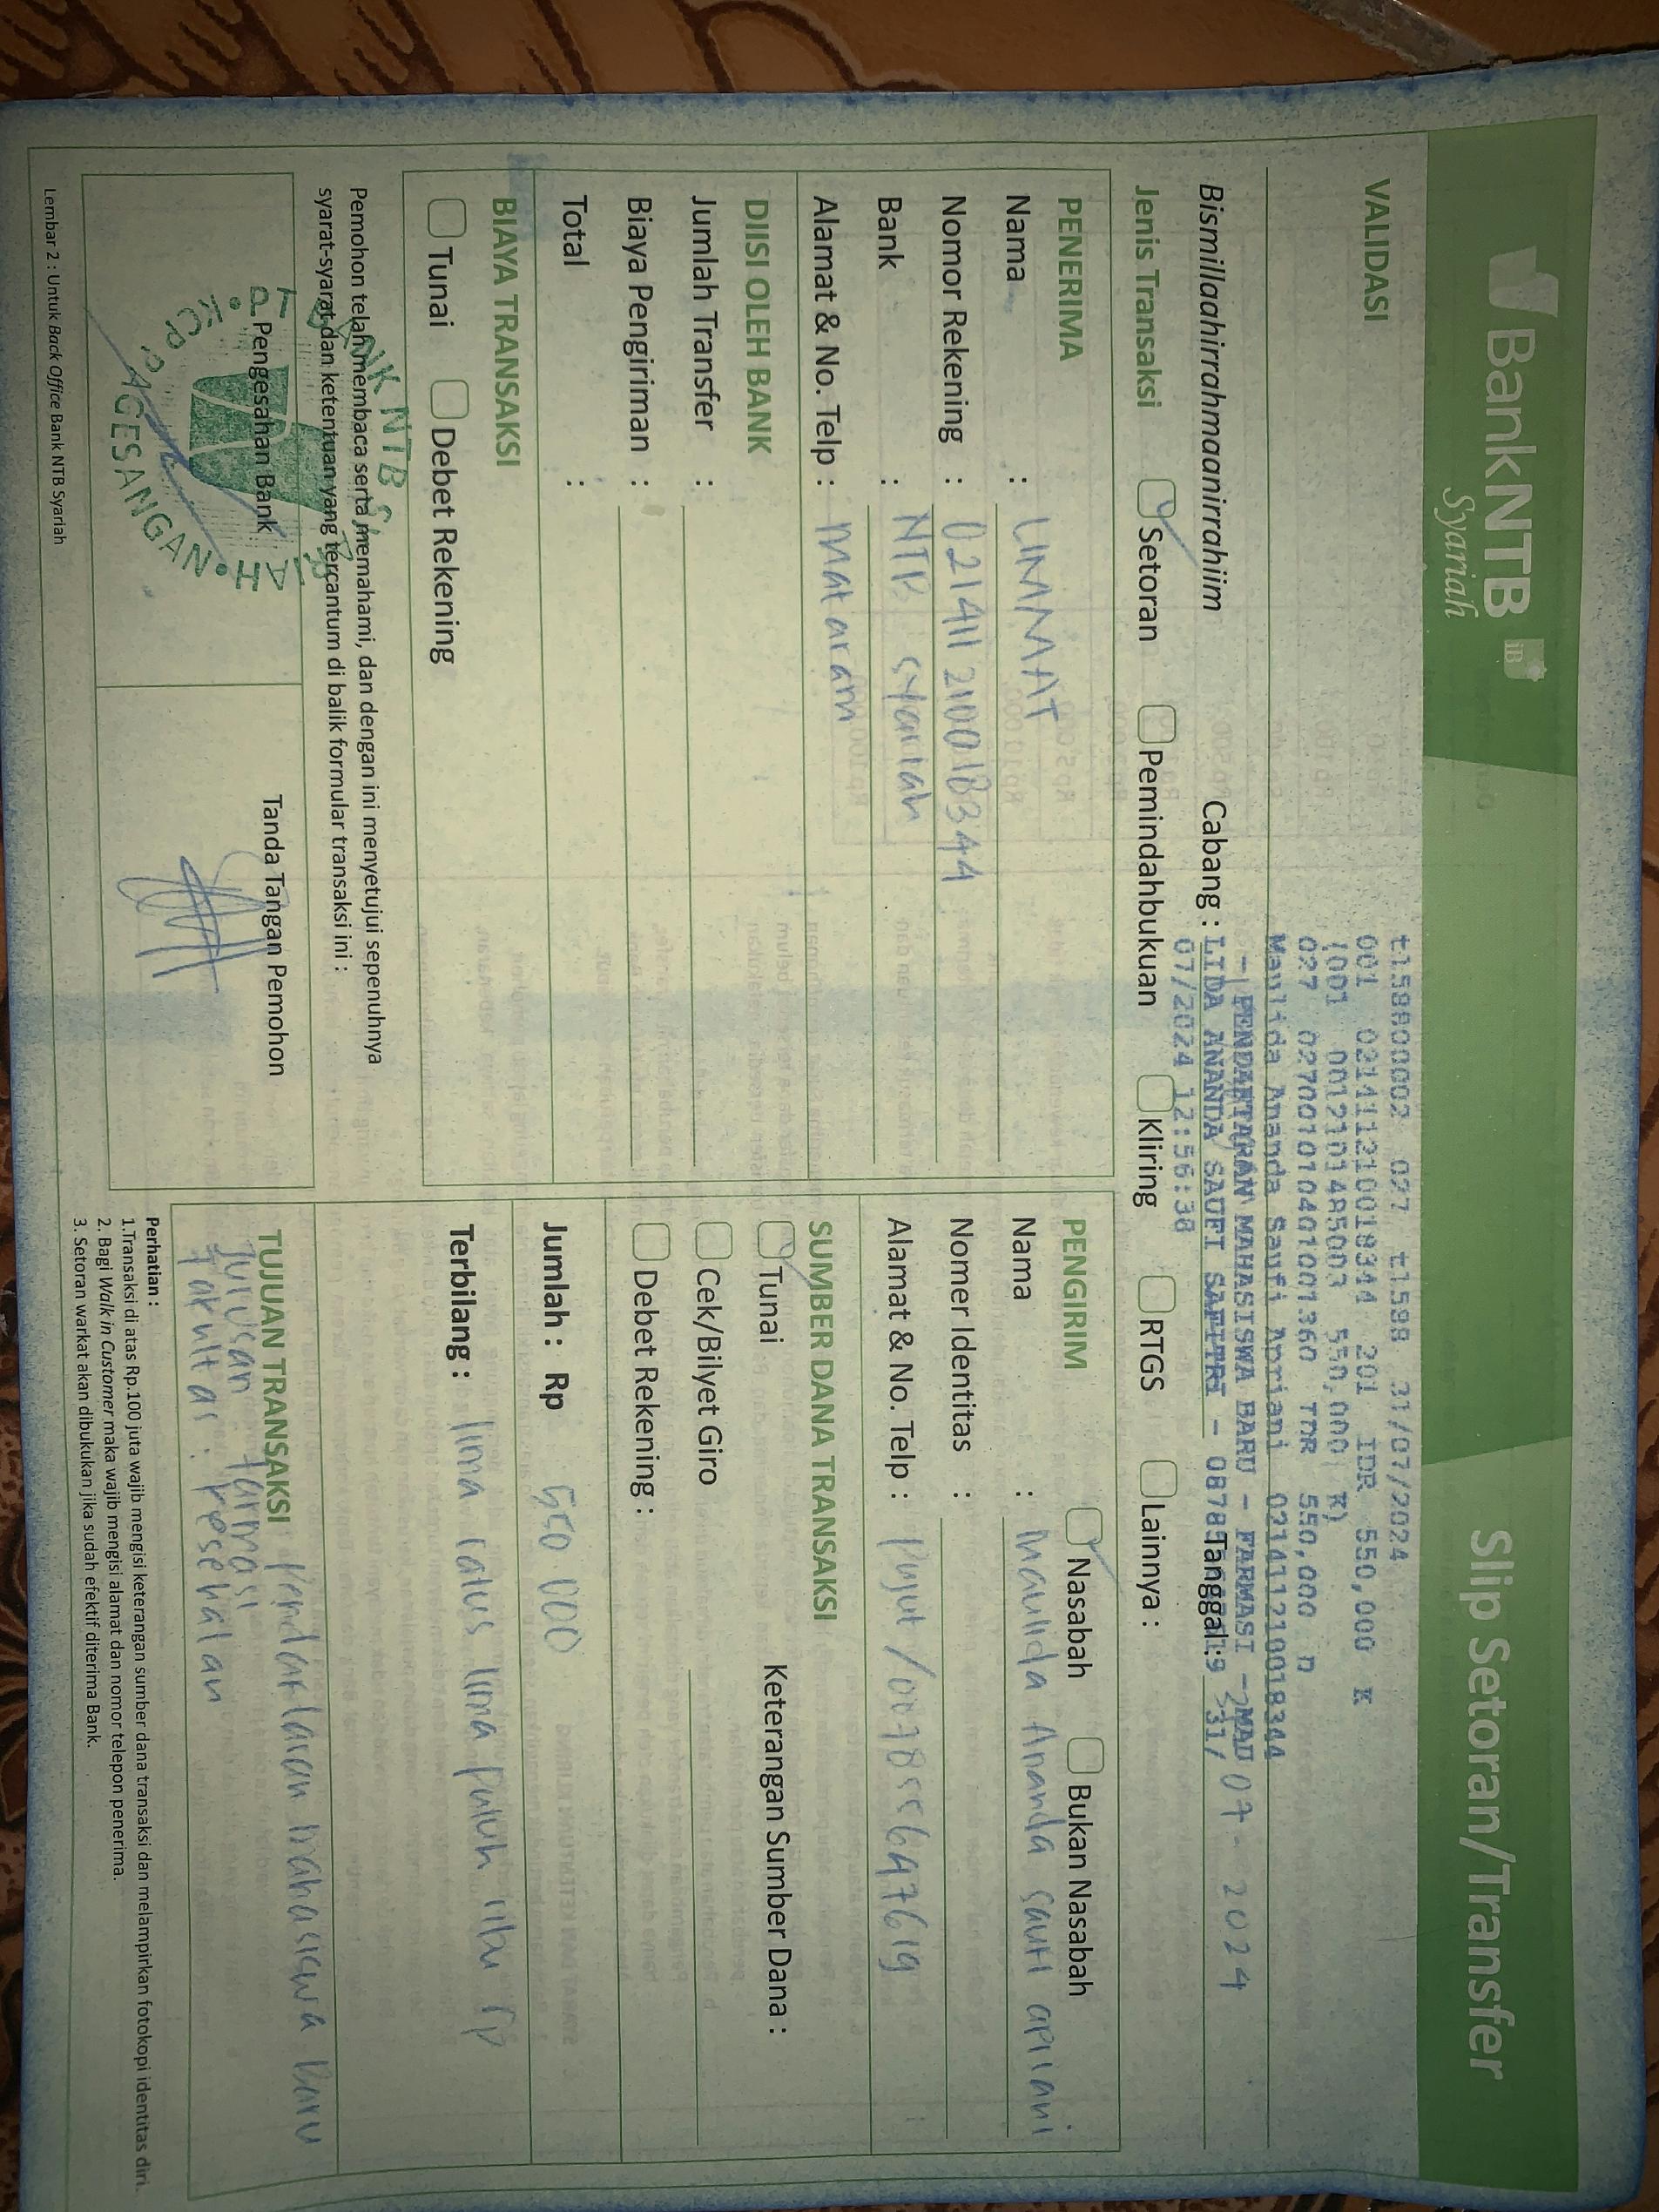 BankNTB iB
Syariah
Slip Setoran/Transfer
VALIDASI
t1588OOOO2 027 t1588 31/07/2024
001 0214112100018344 201 IDR 550,000 K
(001 0012101485003 550,000 K)
027 0270010104010001360 TDR 550,000 D
Maulida Ananda Saufi Apriani 0214112100018344
- PENDAFTARAN MAHASISWA BARU - FARMASI - MAU
LIDA ANANDA SAUFI SAFITRI - 08785
07/2024 12:56:38
Bismillaahirrahmaanirrahiim
Cabang :
Tanggal : 31/07-2024
Jenis Transaksi
Setoran
Pemindahbukuan
Kliring
RTGS
Lainnya :
PENERIMA
Nama : UMMAT
Nomor Rekening : 0214112100018344
Bank : NTB syariah
Alamat & No. Telp : Mataram
DIISI OLEH BANK
Jumlah Transfer :
Biaya Pengiriman :
Total :
BIAYA TRANSAKSI
Tunai
Debet Rekening
Pemohon telah membaca serta memahami, dan dengan ini menyetujui sepenuhnya
syarat-syarat dan ketentuan yang tercantum di balik formular transaksi ini :
Pengesahan Bank
PT BANK NTB SYARIAH
KCP PAGESANGAN
Tanda Tangan Pemohon
Lembar 2 : Untuk Back Office Bank NTB Syariah
PENGIRIM
Nasabah
Bukan Nasabah
Nama : Maulida Ananda saufi apriani
Nomer Identitas :
Alamat & No. Telp : Pujut /
SUMBER DANA TRANSAKSI
Tunai
Keterangan Sumber Dana :
Cek/Bilyet Giro
Debet Rekening :
Jumlah : Rp 550 000
Terbilang : lima ratus lima puluh ribu rp
TUJUAN TRANSAKSI Pendaftaran mahasiswa Baru
Jurusan : farmasi
Fakultas : kesehatan
Perhatian :
1.Transaksi di atas Rp.100 juta wajib mengisi keterangan sumber dana transaksi dan melampirkan fotokopi identitas diri.
2. Bagi Walk in Customer maka wajib mengisi alamat dan nomor telepon penerima.
3. Setoran warkat akan dibukukan jika sudah efektif diterima Bank.